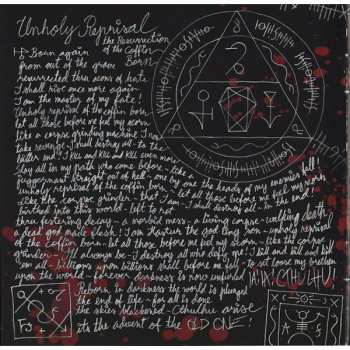 Unholy Reprisal
the Resurrection
of the Coffin
Born
Born again
from out of the grave
resurrected thru aeons of hate
I shall rise once more again
I am the master of my fate!
Unholy reprisal of the coffin born
let all those before me feel my scorn
like a corpse grinding machine I am
take revenge - I shall destroy all - to the
and I kill and kill and kill even more
slay all in my path who come before - like a
straight out of hell - one by one the heads of my enemies fall!
Unholy reprisal of the coffin born - let all those before me feel my scorn
like the corpse grinder that I am - I shall destroy all - in the end!
Birthed into this world - left to rot
thru festering decay - a morbid mess - a living corpse - walking death
a dead god made flesh! I am the god - unholy reprisal
of the coffin born - let all those before me feel my scorn - like the corpse
grinder - I'll always be - I destroy all who defy me! I kill and kill and kill
em all - billions upon billions shall before me fall - to set loose my brethren
upon the world - forever darkness is now unfurled
IA! IA! CTHULHU!
Reborn in darkness the world is plunged
the end of life - for all is done
the skies blackened - Cthulhu arise
its the advent of the OLD ONE!